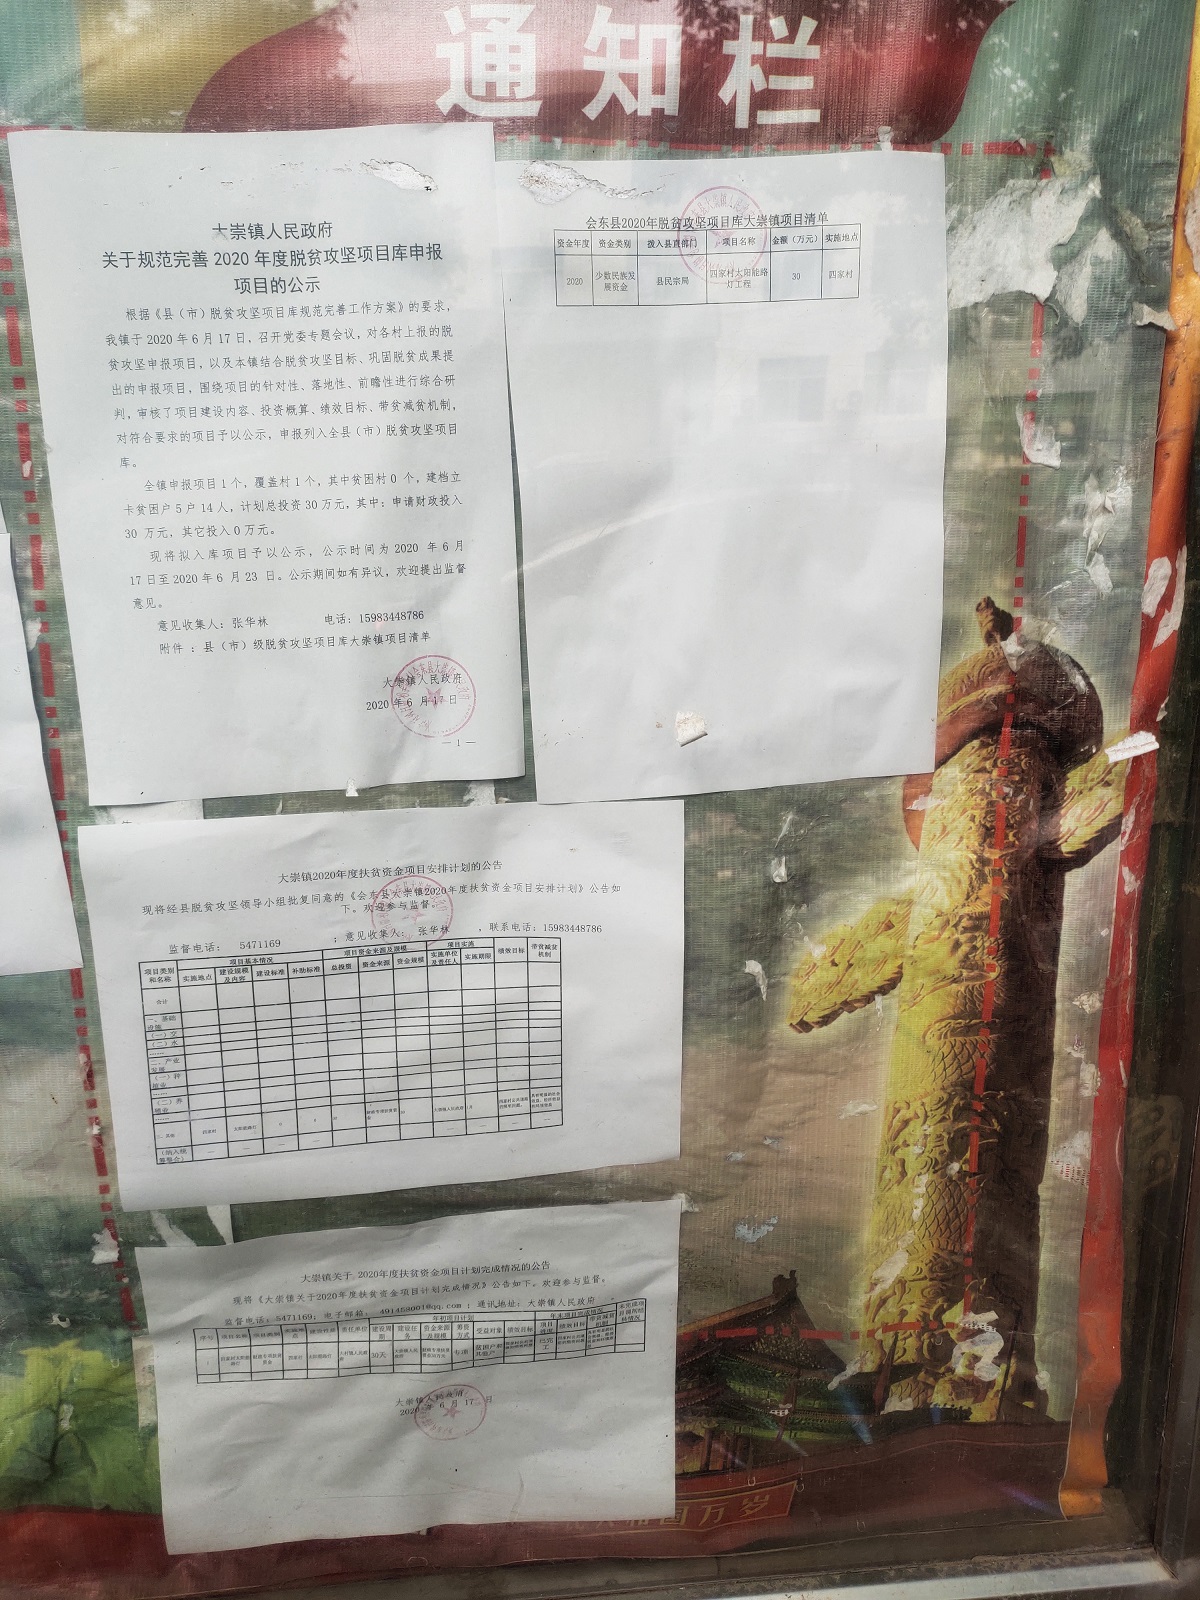 通知栏
大崇镇人民政府
关于规范完善 2020 年度脱贫攻坚项目库申报
项目的公示
根据《县（市）脱贫攻坚项目库规范完善工作方案》的要求，
我镇于 2020 年 6 月 17 日，召开党委专题会议，对各村上报的脱
贫攻坚申报项目，以及本镇结合脱贫攻坚目标、巩固脱贫成果提
出的申报项目，围绕项目的针对性、落地性、前瞻性进行综合研
判，审核了项目建设内容、投资概算、绩效目标、带贫减贫机制，
对符合要求的项目予以公示，申报列入全县（市）脱贫攻坚项目
库。
全镇申报项目 1 个，覆盖村 1 个，其中贫困村 0 个，建档立
卡贫困户 5 户 14 人，计划总投资 30 万元，其中：申请财政投入
30 万元，其它投入 0 万元。
现将拟入库项目予以公示，公示时间为 2020 年 6 月
17 日至 2020 年 6 月 23 日。公示期间如有异议，欢迎提出监督
意见。
意见收集人：张华林 电话：15983448786
附件：县（市）级脱贫攻坚项目库大崇镇项目清单
大崇镇人民政府
2020 年 6 月 17 日
— 1 —
会东县2020年脱贫攻坚项目库大崇镇项目清单
资金年度 资金类别 拨入县直部门 项目名称 金额（万元） 实施地点
2020 少数民族发展资金 县民宗局 四家村太阳能路灯工程 30 四家村
大崇镇2020年度扶贫资金项目安排计划的公告
现将经县脱贫攻坚领导小组批复同意的《会东县大崇镇2020年度扶贫资金项目安排计划》公告如
下。欢迎参与监督。
监督电话： 5471169 ；意见收集人： 张华林 ，联系电话：15983448786
项目类别和名称 项目基本情况 项目资金来源及规模 项目实施 绩效目标 带贫减贫机制
实施地点 建设规模及内容 建设标准 补助标准 总投资 资金来源 资金规模 实施单位及责任人 实施期限
合计
一、基础设施
（一）交
（二）水
……
二、产业发展
（一）种植业
……
（二）养殖业
……
三、其他 四家村 太阳能路灯 大崇镇人民政府
（纳入统筹整合）
大崇镇关于 2020年度扶贫资金项目计划完成情况的公告
现将《大崇镇关于2020年度扶贫资金项目计划完成情况》公告如下。欢迎参与监督。
监督电话：5471169；电子邮箱： @qq.com；通讯地址：大崇镇人民政府
年初项目计划 年末项目完成情况
序号 项目名称 项目类别 实施地点 建设性质 责任单位 建设周期 建设任务 资金来源及规模 筹资方式 受益对象 绩效目标 项目进度 绩效目标 带贫减贫机制
四家村 30天 专项 贫困户和其他户 已完工
大崇镇人民政府
2020 年 6 月 17 日
国万岁